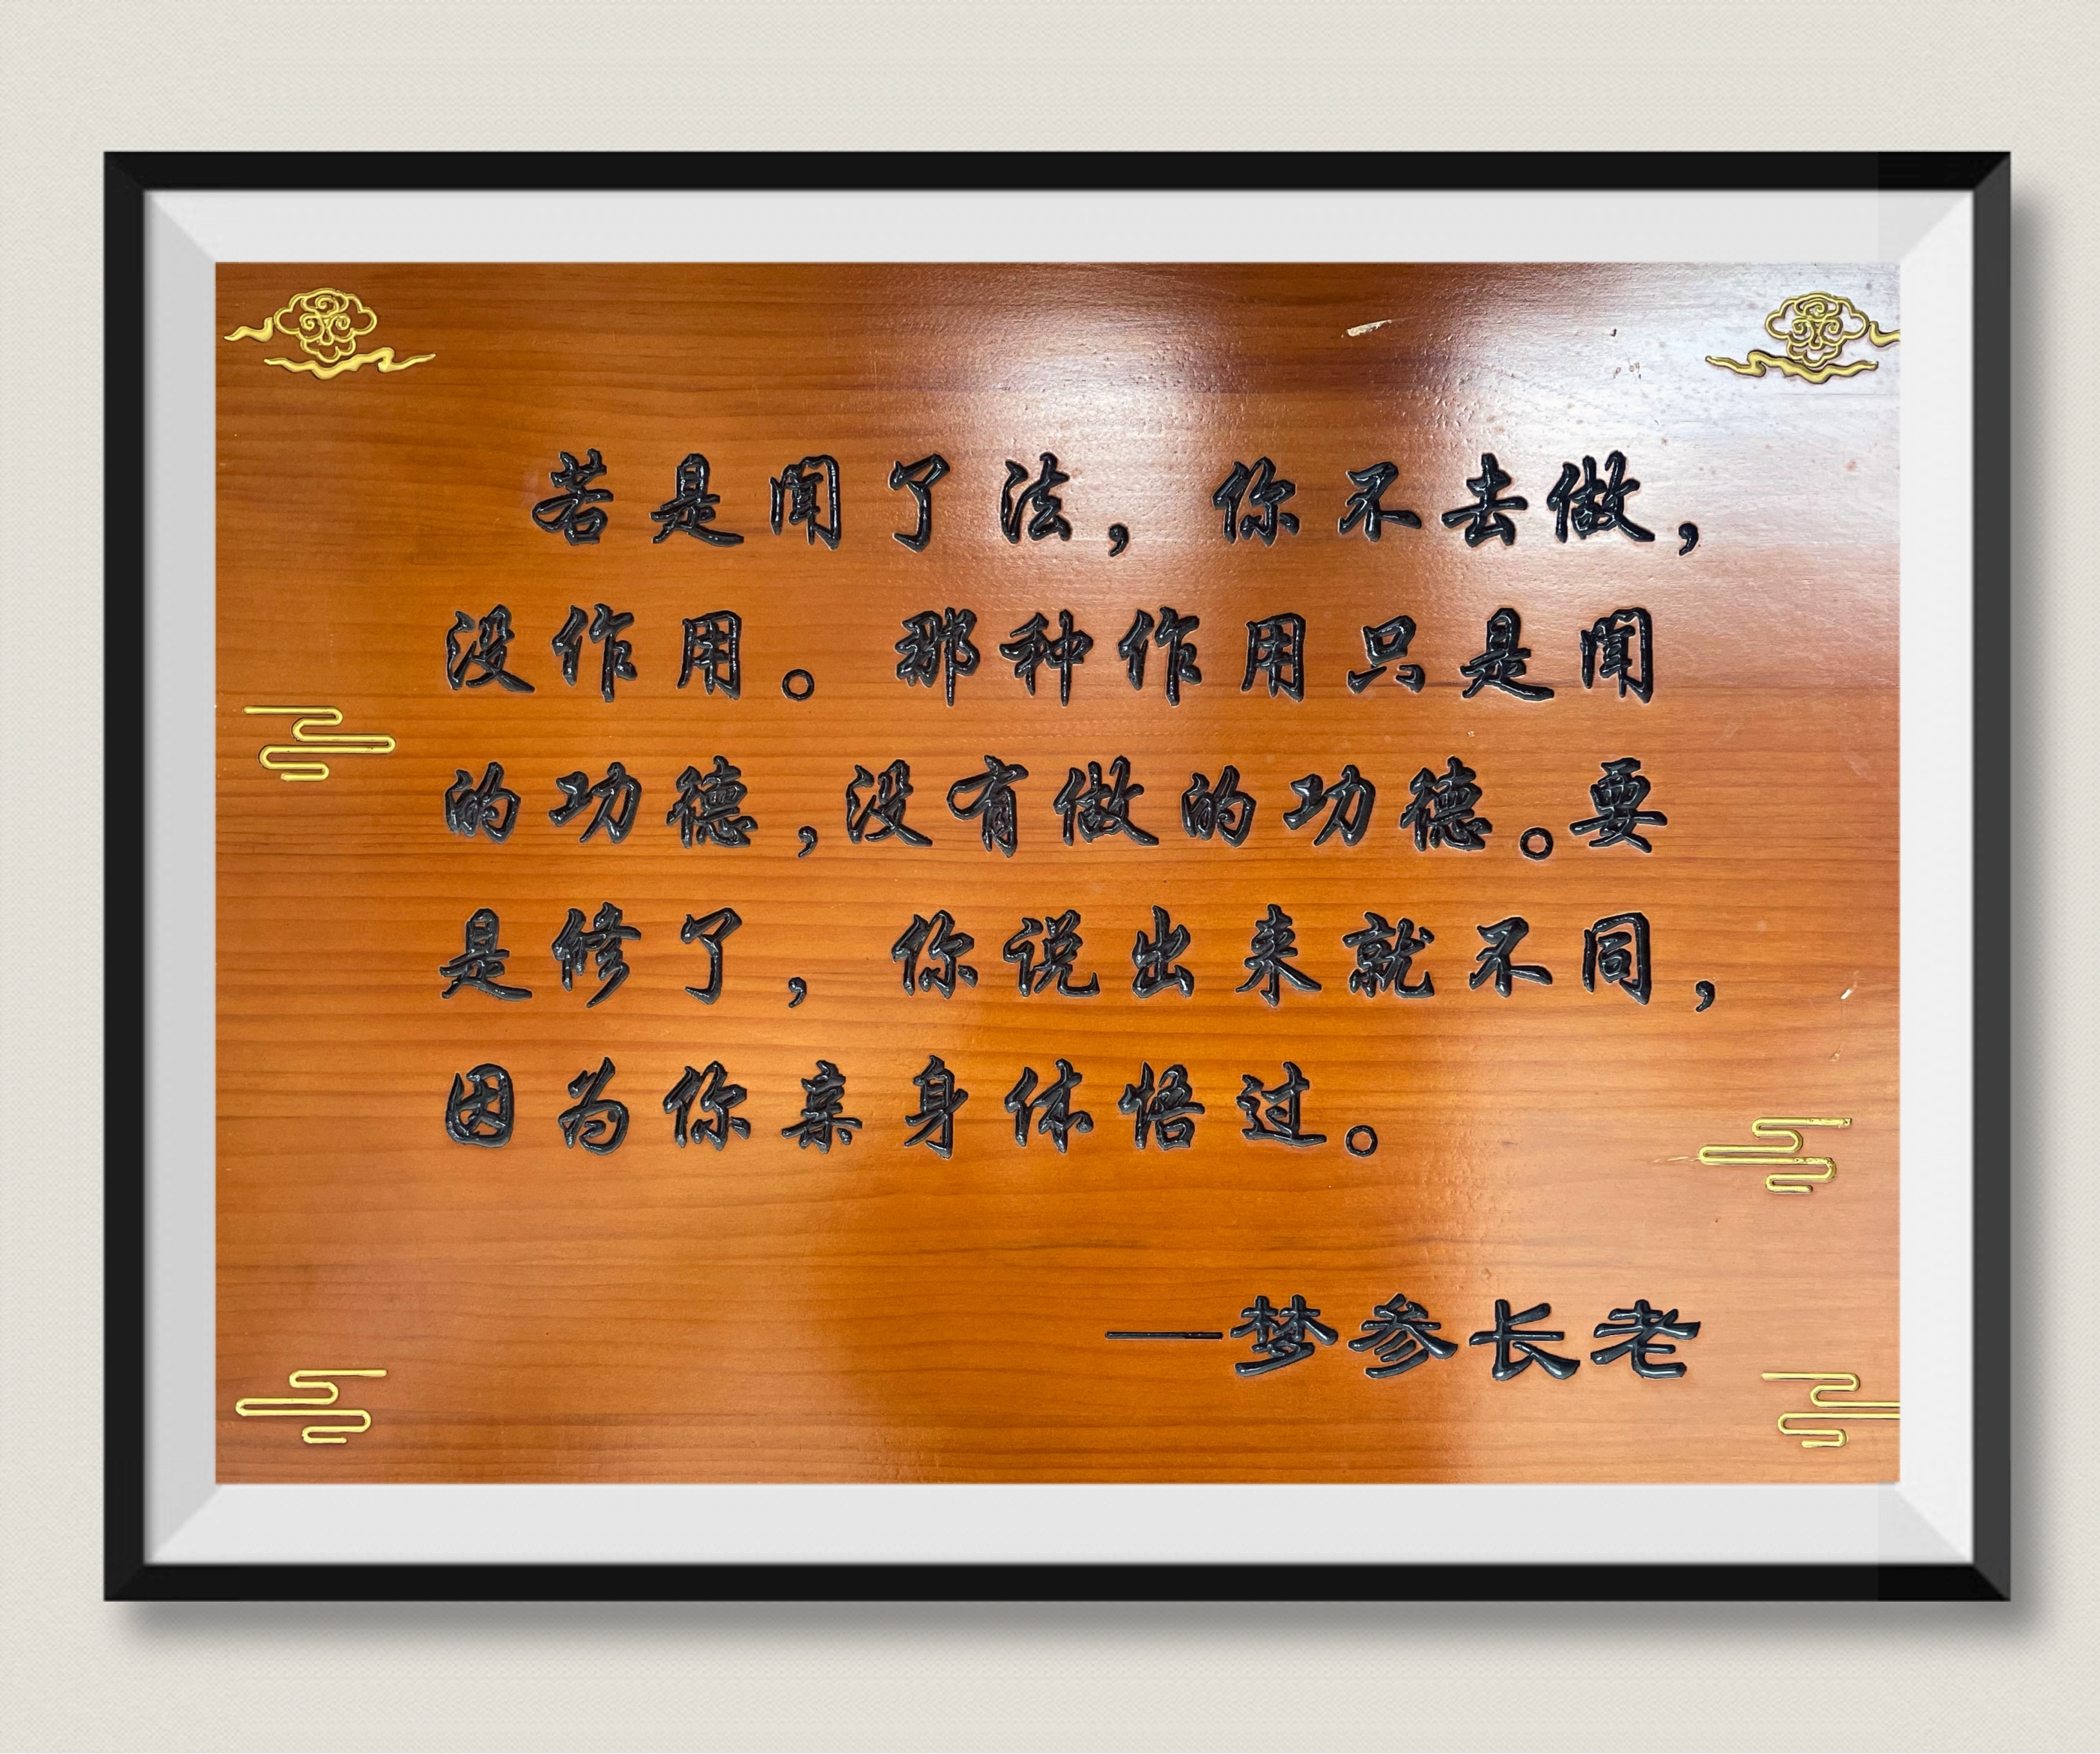 若是闻了法，你不去做，
没作用。那种作用只是闻
的功德，没有做的功德。要
是修了，你说出来就不同，
因为你亲身体悟过。
—梦参长老